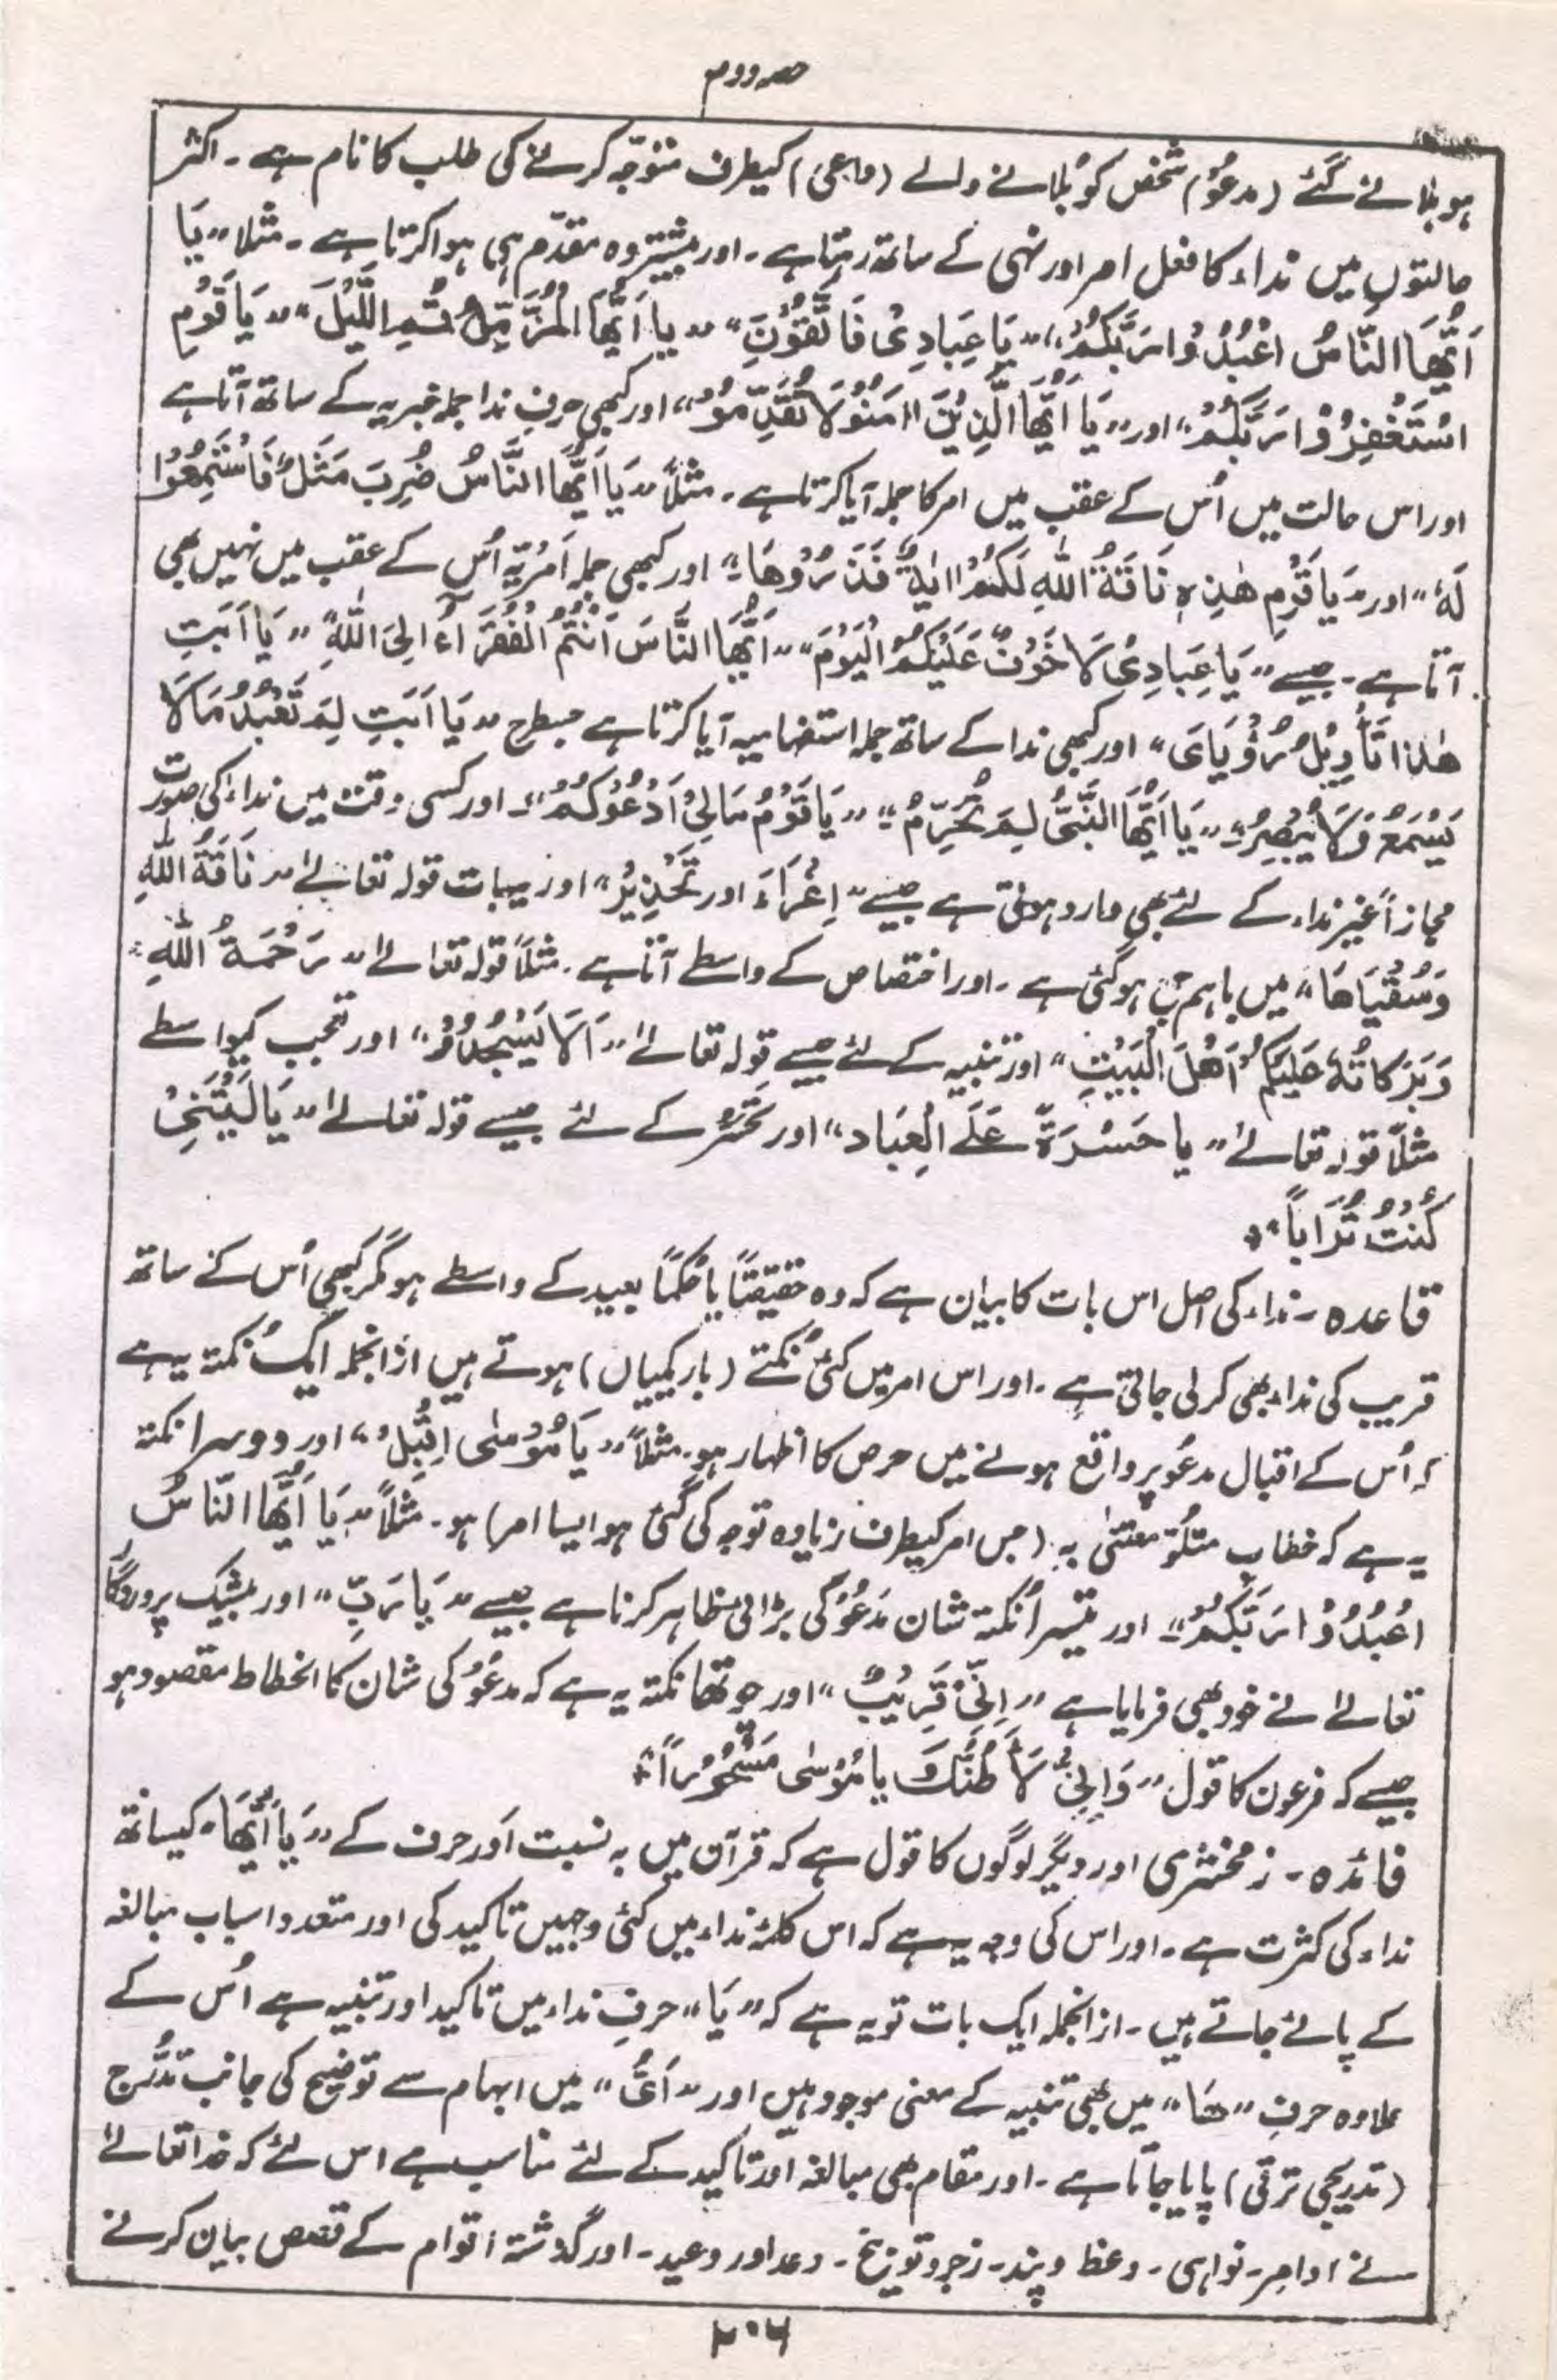 حصہ دوم
ہو بلانے گئے (مدعُو) شخص کو بُلانے والے (داعی) کیطرف متوجّہ کرنے کی طلب کا نام ہے ۔ اکثر
حالتوں میں نداء کا فعل امر اور نہی کے ساتھ رہتا ہے ۔ اور بیشتر وہ مقدّم ہی ہوا کرتا ہے ۔ مثلا " یَا
اَیُّهَا النَّاسُ اعْبُدُوا رَبَّکُمُ " " یَا عِبَادِیْ فَاتَّقُوْنِ " " یا اَیُّهَا الْمُزَّمِّلُ قُمِ اللَّیْلَ " " یَا قَوْمِ
اسْتَغْفِرُوْا رَبَّکُمْ " اور " یَا اَیُّهَا الَّذِیْنَ اٰمَنُوْ لَا تُقَدِّمُوْ " اور کبھی حرفِ ندا جملہ خبریہ کے ساتھ آتا ہے
اور اس حالت میں اُس کے عقب میں امر کا جملہ آیا کرتا ہے ۔ مثلاً " یَا اَیُّهَا النَّاسُ ضُرِبَ مَثَلٌ فَاسْتَمِعُوْا
لَهٗ " اور " یَا قَوْمِ هٰذِهٖ نَاقَةُ اللهِ لَکُمْ اٰیَةً فَذَرُوْهَا " اور کبھی جملہ اَمْرِیّہ اُس کے عقب میں نہیں بھی
آتا ہے ۔ جیسے " یَا عِبَادِیْ لَا خَوْفٌ عَلَیْکُمُ الْیَوْمَ " " اَیُّهَا النَّاسَ اَنْتُمُ الْفُقَرَآءُ اِلَی اللهِ " " یَا اَبَتِ
هٰذَا تَأْوِیْلُ رُؤْیَایَ " اور کبھی ندا کے ساتھ جملہ استفہامیہ آیا کرتا ہے جسطرح " یَا اَبَتِ لِمَ تَعْبُدُ مَا لَا
یَسْمَعُ وَلَا یُبْصِرُ " " یَا اَیُّهَا النَّبِیُّ لِمَ تُحَرِّمُ " " یَا قَوْمُ مَالِیْ اَدْعُوْکُمْ " ۔ اور کسی وقت میں نداء کی صورت
مجازاً غیر نداء کے لئے بھی وارد ہوتی ہے جیسے " اِغْرَاءَ اور تَحْذِیْر " اور یہ بات قولہ تعالےٰ " نَاقَةَ اللهِ
وَسُقْیَاهَا " میں باہم جمع ہو گئی ہے ۔ اور اختصاص کے واسطے آتا ہے ۔ مثلاً قولہ تعالےٰ " رَحْمَةُ اللهِ
وَبَرَکَاتُهٗ عَلَیْکُمْ اَهْلَ الْبَیْتِ " اور تنبیہ کے لئے جیسے قولہ تعالےٰ " اَلَا یَسْجُدُوْا " اور تعجب کیواسطے
مثلاً قولہ تعالےٰ " یا حَسْرَةً عَلَے الْعِبَاد " اور تحسّر کے لئے جیسے قولہ تعالےٰ " یَا لَیْتَنِیْ
کُنْتُ تُرَاباً "
قاعدہ ۔ نداء کی اصل اس بات کا بیان ہے کہ وہ حقیقتًا یا حُکمًا بعید کے واسطے ہو مگر کبھی اُس کے ساتھ
قریب کی نداء بھی کر لی جاتی ہے ۔ اور اس امر میں کئی نُکتے (باریکییاں) ہوتے ہیں ازانجملہ ایک نُکتہ یہ ہے
کہ اُس کے اقبال مدعُو پر واقع ہونے میں حرص کا اظہار ہو ۔ مثلاً " یَا مُوْسٰی اَقْبِلْ " اور دوسرا نکتہ
یہ ہے کہ خطاب متلُوّ معتنیٰ بہ (جس امر کیطرف زیادہ توجہ کی گئی ہو ایسا امر) ہو ۔ مثلاً " یَا اَیُّهَا النَّاسُ
اعْبُدُوْا رَبَّکُمْ " اور تیسرا نُکتہ شان مَدعُوْ کی بڑائی ظاہر کرنا ہے جیسے " یَا رَبِّ " اور بیشک پروردگار
تعالےٰ نے خود بھی فرمایا ہے " اِنِّیْ قَرِیْبٌ " اور چوتھا نکتہ یہ ہے کہ مدعُوْ کی شان کا انحطاط مقصود ہو
جیسے کہ فرعون کا قول " وَاِنِّیْ لَاَظُنُّکَ یا مُوْسٰی مَسْحُوْراً "
فائدہ ۔ زمخشری اور دیگر لوگوں کا قول ہے کہ قرآن میں بہ نسبت اَور حرف کے " یَا اَیُّهَا " کیساتھ
نداء کی کثرت ہے ۔ اور اس کی وجہ یہ ہے کہ اس کلمۂ نداء میں کئی وجہیں تاکید کی اور متعدد اسباب مبالغہ
کے پائے جاتے ہیں ۔ ازانجملہ ایک بات تو یہ ہے کہ " یَا " حرفِ نداء میں تاکید اور تنبیہ ہے اُس کے
علاوہ حرفِ " هَا " میں بھی تنبیہ کے معنی موجود ہیں اور " اَیُّ " میں ابہام سے توضیح کی جانب تدرّج
(تدریجی ترقی) پایا جاتا ہے ۔ اور مقام بھی مبالغہ اور تاکید کے لئے مناسب ہے اس لئے کہ خدا تعالےٰ
نے اوامر ۔ نواہی ۔ وعظ و پند ۔ زجر و توبیخ ۔ وعد اور وعید ۔ اور گذشتہ اقوام کے قصص بیان کرنے
۲۰۶